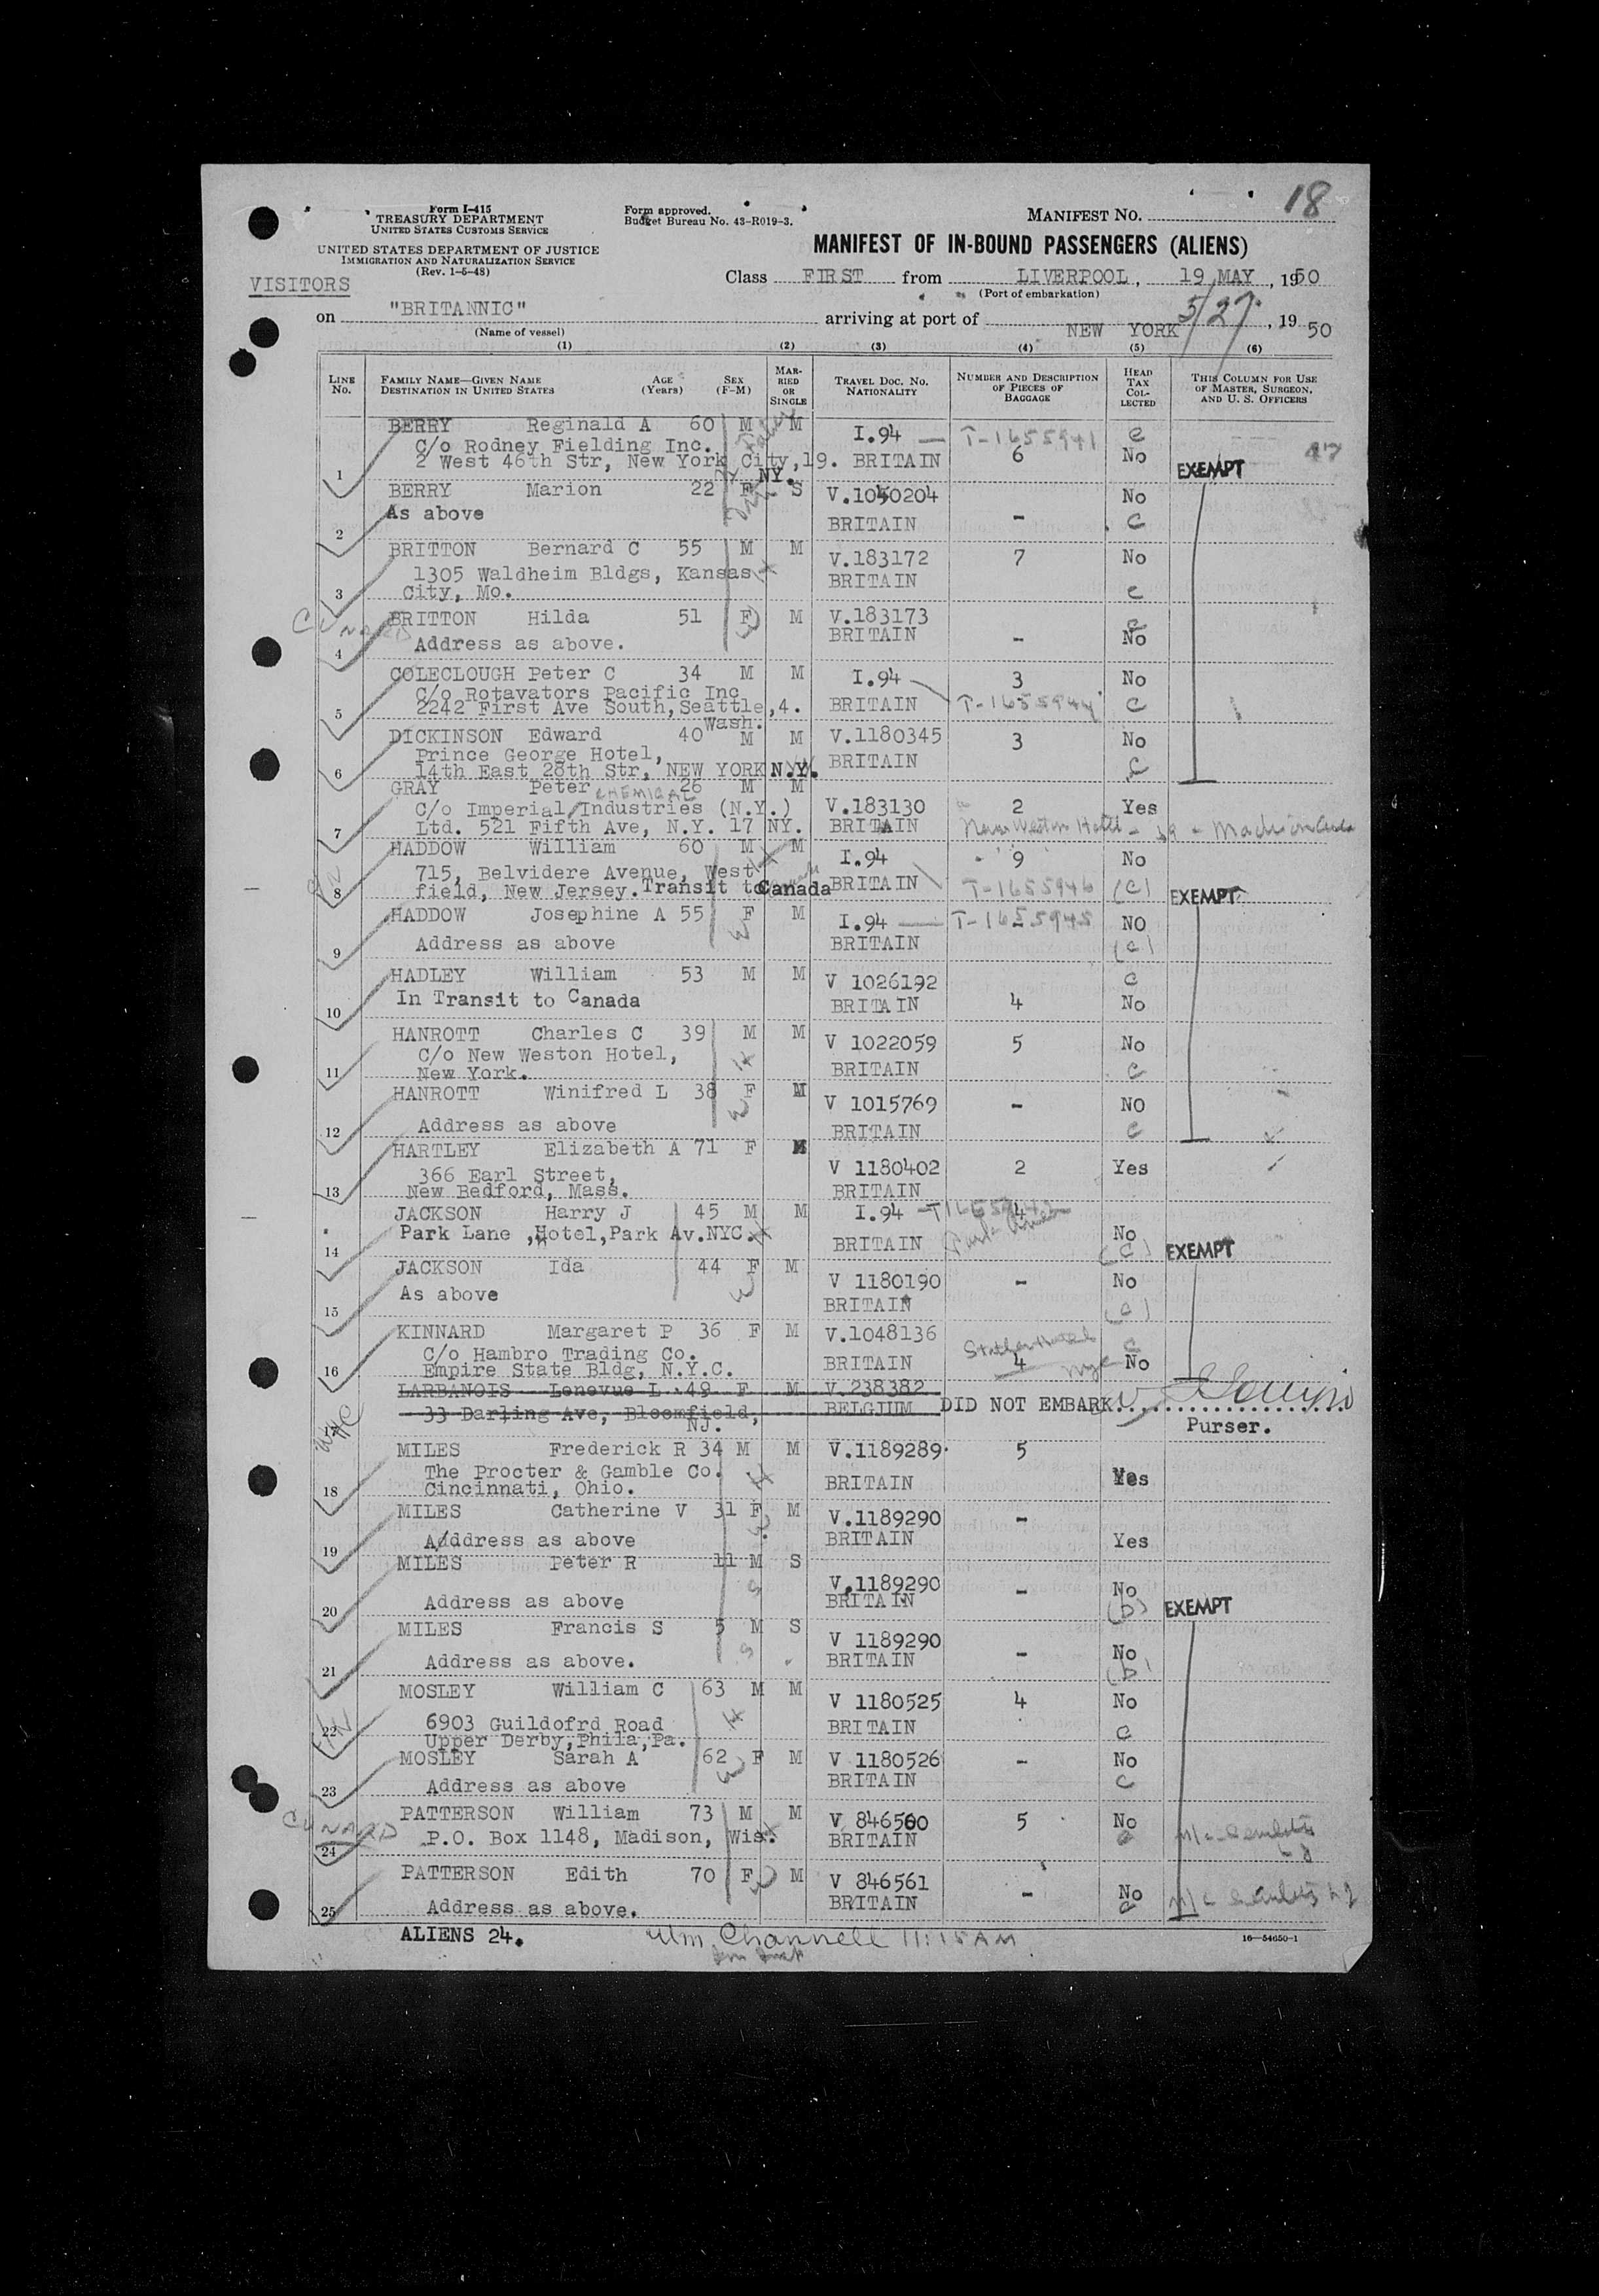 18
Form I-415
TREASURY DEPARTMENT
UNITED STATES CUSTOMS SERVICE
Form approved.
Budget Bureau No. 43-R019-3.
MANIFEST NO.
UNITED STATES DEPARTMENT OF JUSTICE
IMMIGRATION AND NATURALIZATION SERVICE
(Rev. 1-5-48)
MANIFEST OF IN-BOUND PASSENGERS (ALIENS)
VISITORS
Class FIRST from LIVERPOOL, 19 MAY, 1950
(Port of embarkation)
on "BRITANNIC" arriving at port of NEW YORK 5/27, 1950
(Name of vessel)
(1) (2) (3) (4) (5) (6)
LINE NO.
FAMILY NAME—GIVEN NAME
DESTINATION IN UNITED STATES
AGE (Years)
SEX (F-M)
MARRIED OR SINGLE
TRAVEL DOC. NO. NATIONALITY
NUMBER AND DESCRIPTION OF PIECES OF BAGGAGE
HEAD TAX COLLECTED
THIS COLUMN FOR USE OF MASTER, SURGEON, AND U. S. OFFICERS
BERRY Reginald A 60 M M I.94 — T-1655941 c
C/o Rodney Fielding Inc. 6 No
2 West 46th Str, New York City,19. BRITAIN EXEMPT
1 NY.
BERRY Marion 22 F S V.1040204 No
As above BRITAIN - c
2
BRITTON Bernard C 55 M M V.183172 7 No
1305 Waldheim Bldgs, Kansas BRITAIN
3 City, Mo. c
CUNARD
BRITTON Hilda 51 F M V.183173 c
4 Address as above. BRITAIN - No
COLECLOUGH Peter C 34 M M I.94 3 No
C/o Rotavators Pacific Inc
5 2242 First Ave South,Seattle,4. BRITAIN T-1655944 C
Wash.
DICKINSON Edward 40 M M V.1180345 3 No
Prince George Hotel, BRITAIN C
6 14th East 28th Str, NEW YORK N.Y.
GRAY Peter 26 M M
CHEMICAL
C/o Imperial/Industries (N.Y.) V.183130 2 Yes
7 Ltd. 521 Fifth Ave, N.Y. 17 NY. BRITAIN
HADDOW William 60 M M I.94 9 No
715, Belvidere Avenue, West
8 field, New Jersey. Transit to Canada BRITAIN T-1655946 (C) EXEMPT
HADDOW Josephine A 55 F M I.94 — T-1655945 NO
9 Address as above BRITAIN (c)
HADLEY William 53 M M V 1026192 c
10 In Transit to Canada BRITAIN 4 No
HANROTT Charles C 39 M M V 1022059 5 No
C/o New Weston Hotel,
11 New York. BRITAIN C
HANROTT Winifred L 38 F M V 1015769 - NO
12 Address as above BRITAIN c
HARTLEY Elizabeth A 71 F V 1180402 2 Yes
366 Earl Street,
13 New Bedford, Mass. BRITAIN
JACKSON Harry J 45 M M I.94 4
Park Lane ,Hotel,Park Av.NYC. BRITAIN No
14 (C) EXEMPT
JACKSON Ida 44 F M V 1180190 - No
As above BRITAIN
15 (c)
KINNARD Margaret P 36 F M V.1048136 c
C/o Hambro Trading Co.
16 Empire State Bldg, N.Y.C. BRITAIN 4 No
LARBANOIS Lenevue L 49 F M V.238382
33 Darling Ave, Bloomfield, BELGIUM DID NOT EMBARK
17 NJ. Purser.
MILES Frederick R 34 M M V.1189289 5
The Procter & Gamble Co.
18 Cincinnati, Ohio. BRITAIN Yes
MILES Catherine V 31 F M V.1189290 -
19 Address as above BRITAIN Yes
MILES Peter R 11 M S V.1189290 - No
20 Address as above BRITAIN (b) EXEMPT
MILES Francis S 5 M S V 1189290 - No
21 Address as above. BRITAIN (b)
MOSLEY William C 63 M M V 1180525 4 No
22 6903 Guildofrd Road BRITAIN C
Upper Derby,Phila,Pa.
MOSLEY Sarah A 62 F M V 1180526 - No
23 Address as above BRITAIN C
PATTERSON William 73 M M V 846560 5 No
CUNARD
24 P.O. Box 1148, Madison, Wis. BRITAIN c
PATTERSON Edith 70 F M V 846561 - No
25 Address as above. BRITAIN c
ALIENS 24. Wm Channell 11:15 AM
16—54650-1